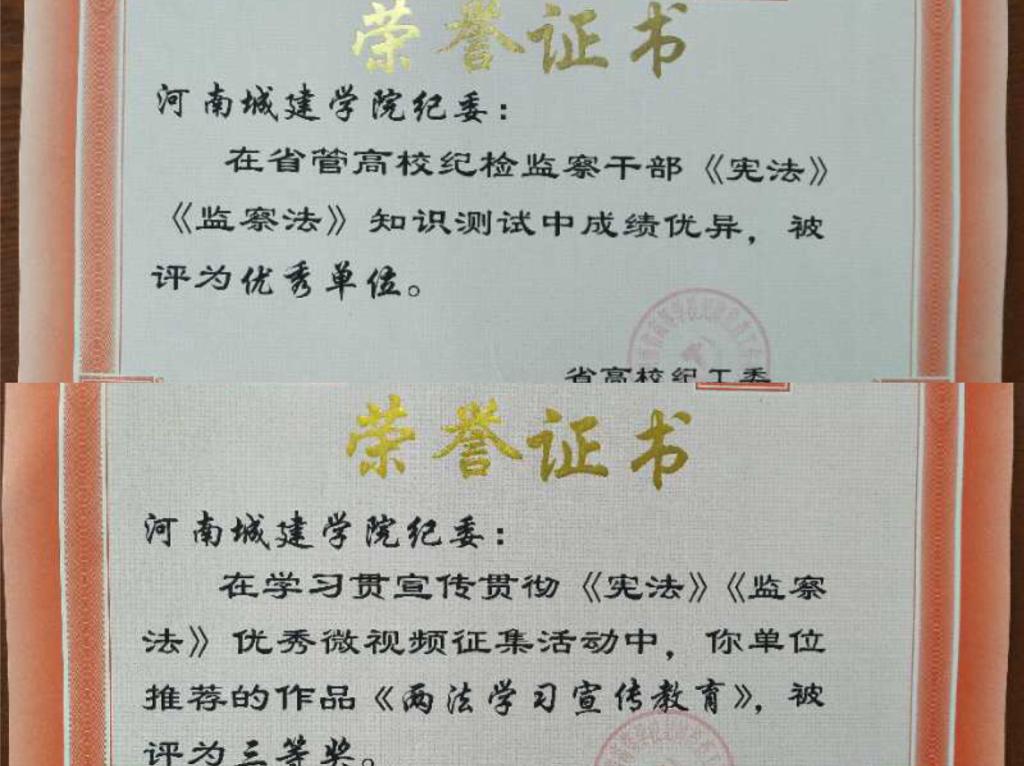 荣誉证书
河南城建学院纪委：
在省管高校纪检监察干部《宪法》
《监察法》知识测试中成绩优异，被
评为优秀单位。
省高校纪工委
荣誉证书
河南城建学院纪委：
在学习贯宣传贯彻《宪法》《监察
法》优秀微视频征集活动中，你单位
推荐的作品《两法学习宣传教育》，被
评为三等奖。